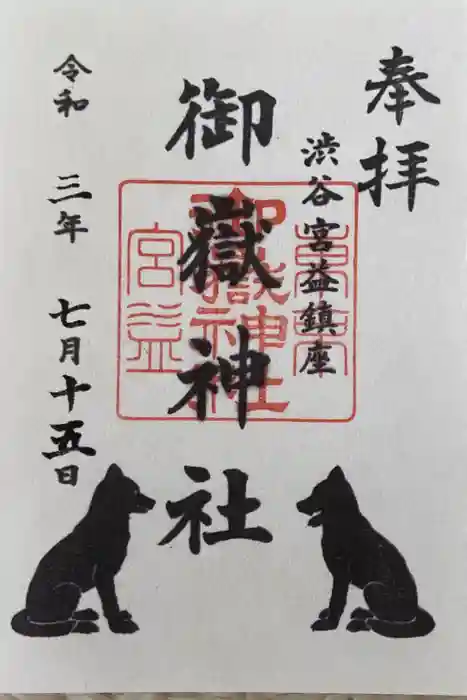 奉拝
渋谷宮益鎮座
御嶽神社
令和 三年 七月十五日
東京
御嶽神社
宮益